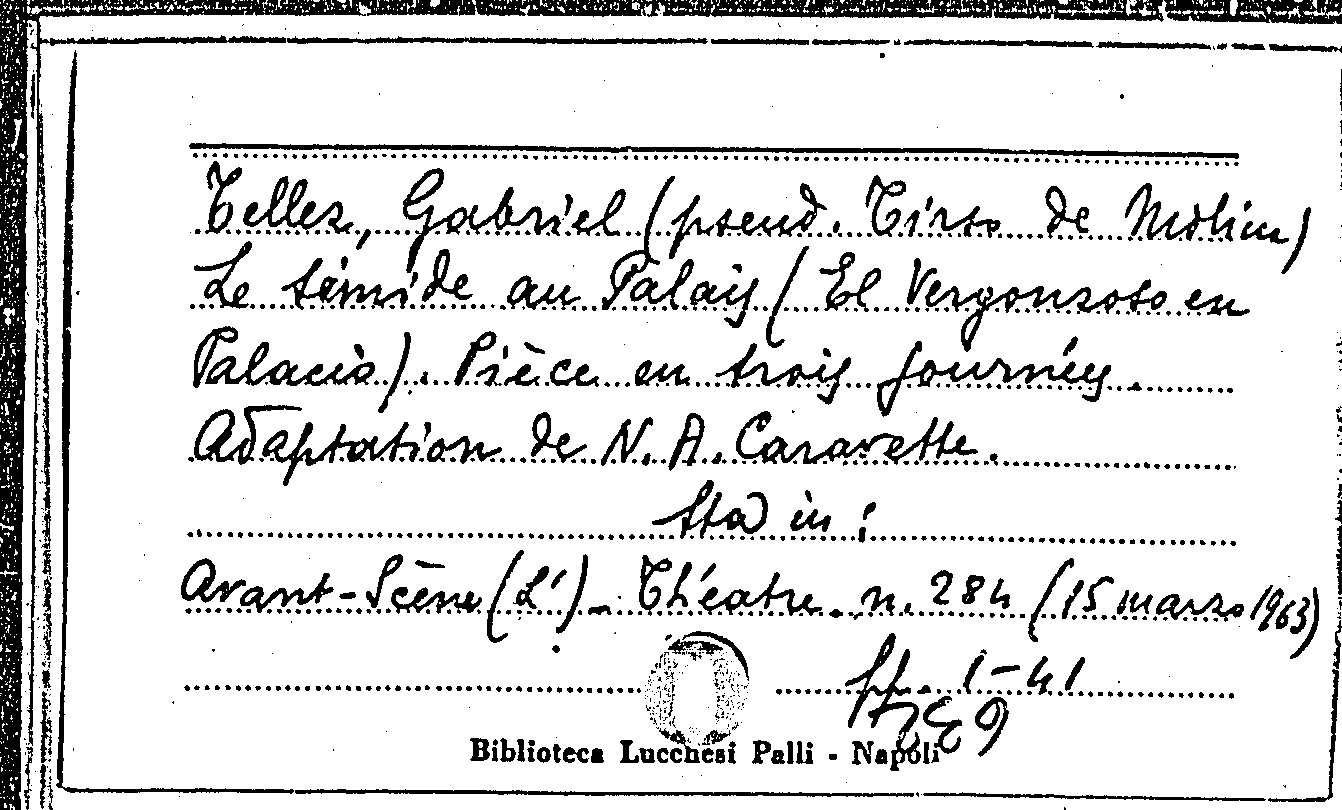 Tellez, Gabriel (pseud. Tirso de Molina)
Le timide au Palais (El Vergonzoso en
Palacio). Pièce en trois journées.
Adaptation de N. A. Caravette.
Sta in:
Avant-Scène (L') - Théatre. n. 284 (15 marzo 1963)
pp. 1-41
Biblioteca Lucchesi Palli - Napoli